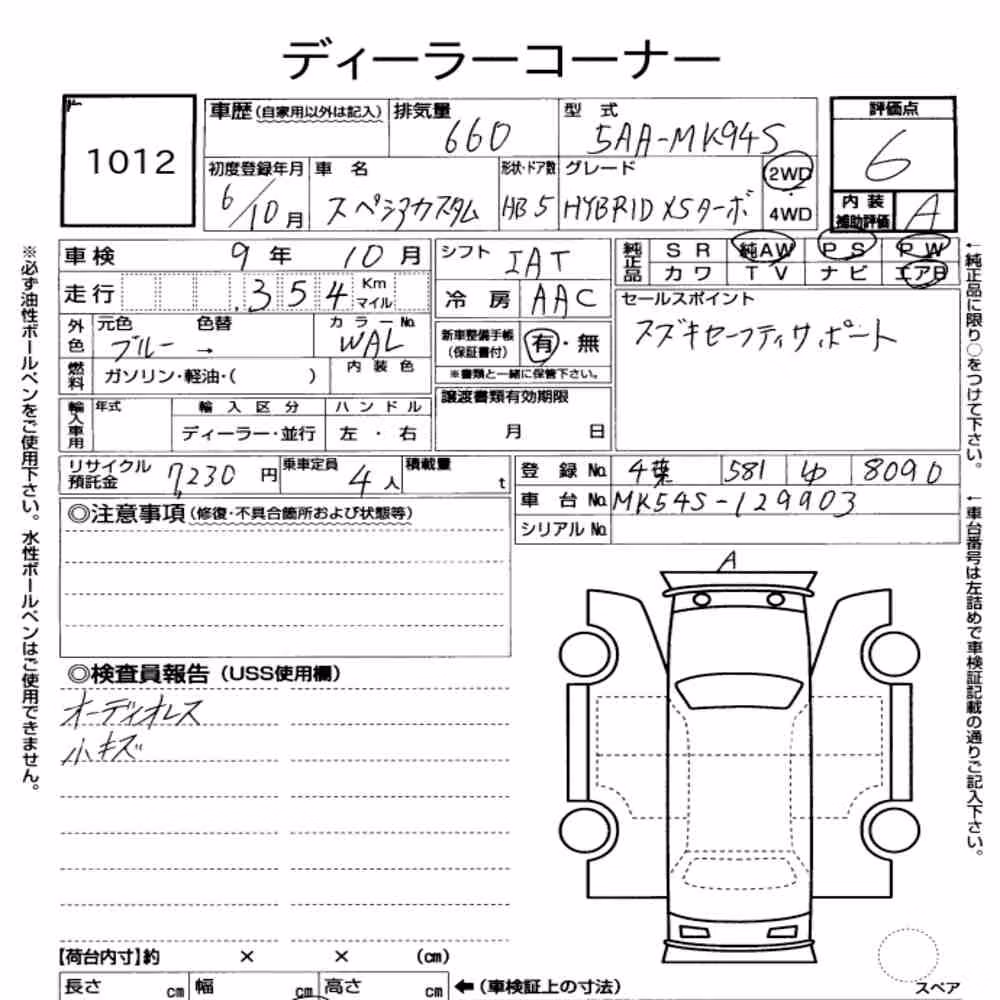 ディーラーコーナー
1012
車歴(自家用以外は記入) 排気量 660 型式 5AA-MK94S
初度登録年月 6/10月 車名 スペシアカスタム 形状・ドア数 HB 5 グレード HYBRID XSターボ 2WD・4WD
評価点 6
内装補助評価 A
車検 9年 10月
走行 .354 Km マイル
外色 元色 ブルー → 色替 カラーNo. WAL
燃料 ガソリン・軽油・( ) 内装色
輸入車用 年式 輸入区分 ディーラー・並行 ハンドル 左・右
シフト IAT
冷房 AAC
新車整備手帳(保証書付) 有・無
※書類と一緒に保管下さい。
譲渡書類有効期限 月 日
純正品 SR 純AW PS PW
カワ TV ナビ エアB
セールスポイント
スズキセーフティサポート
リサイクル預託金 7,230円 乗車定員 4人 積載量 t
登録No. 千葉 581 ゆ 8090
車台No. MK54S-129903
シリアルNo.
◎注意事項(修復・不具合箇所および状態等)
◎検査員報告(USS使用欄)
オーディオレス
小キズ
A
【荷台内寸】約 × × (cm)
長さ cm 幅 cm 高さ cm ←(車検証上の寸法)
スペア
※必ず油性ボールペンをご使用下さい。水性ボールペンはご使用できません。
←純正品に限り○をつけて下さい。
←車台番号は左詰めで車検証記載の通りご記入下さい。